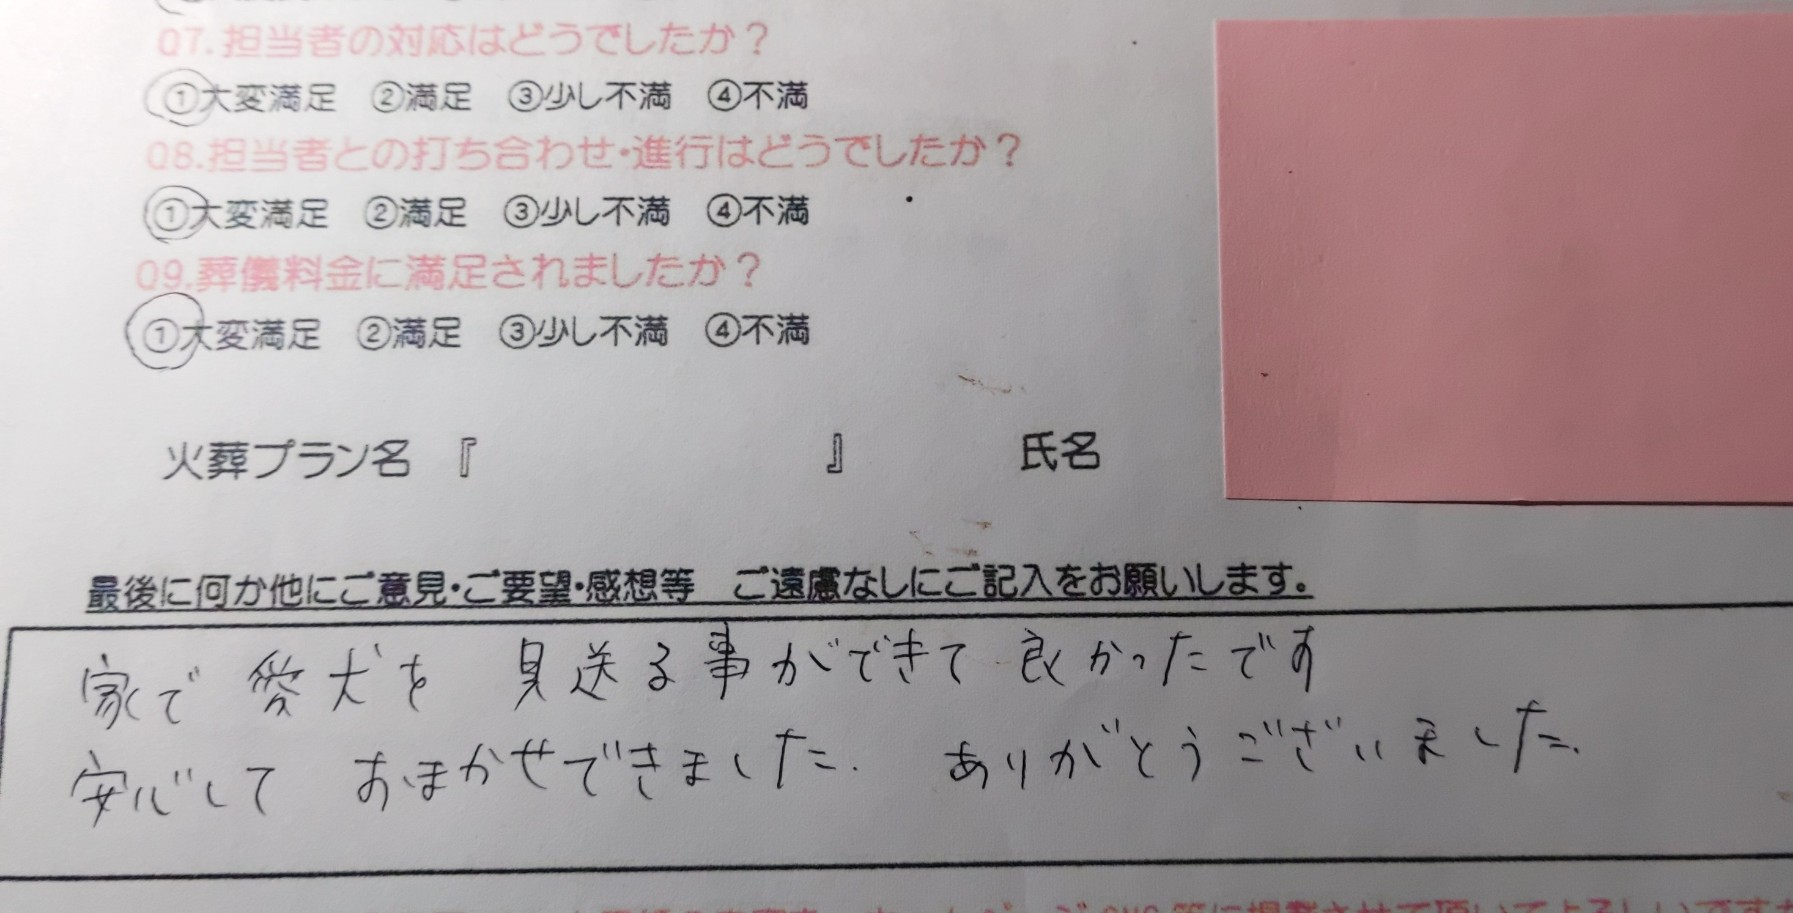 Q7.担当者の対応はどうでしたか？
①大変満足　②満足　③少し不満　④不満
Q8.担当者との打ち合わせ・進行はどうでしたか？
①大変満足　②満足　③少し不満　④不満
Q9.葬儀料金に満足されましたか？
①大変満足　②満足　③少し不満　④不満
火葬プラン名　『　　　　　　　　』　　　氏名
最後に何か他にご意見・ご要望・感想等　ご遠慮なしにご記入をお願いします。
家で 愛犬を 見送る事ができて 良かったです
安心して おまかせできました. ありがとうございました.